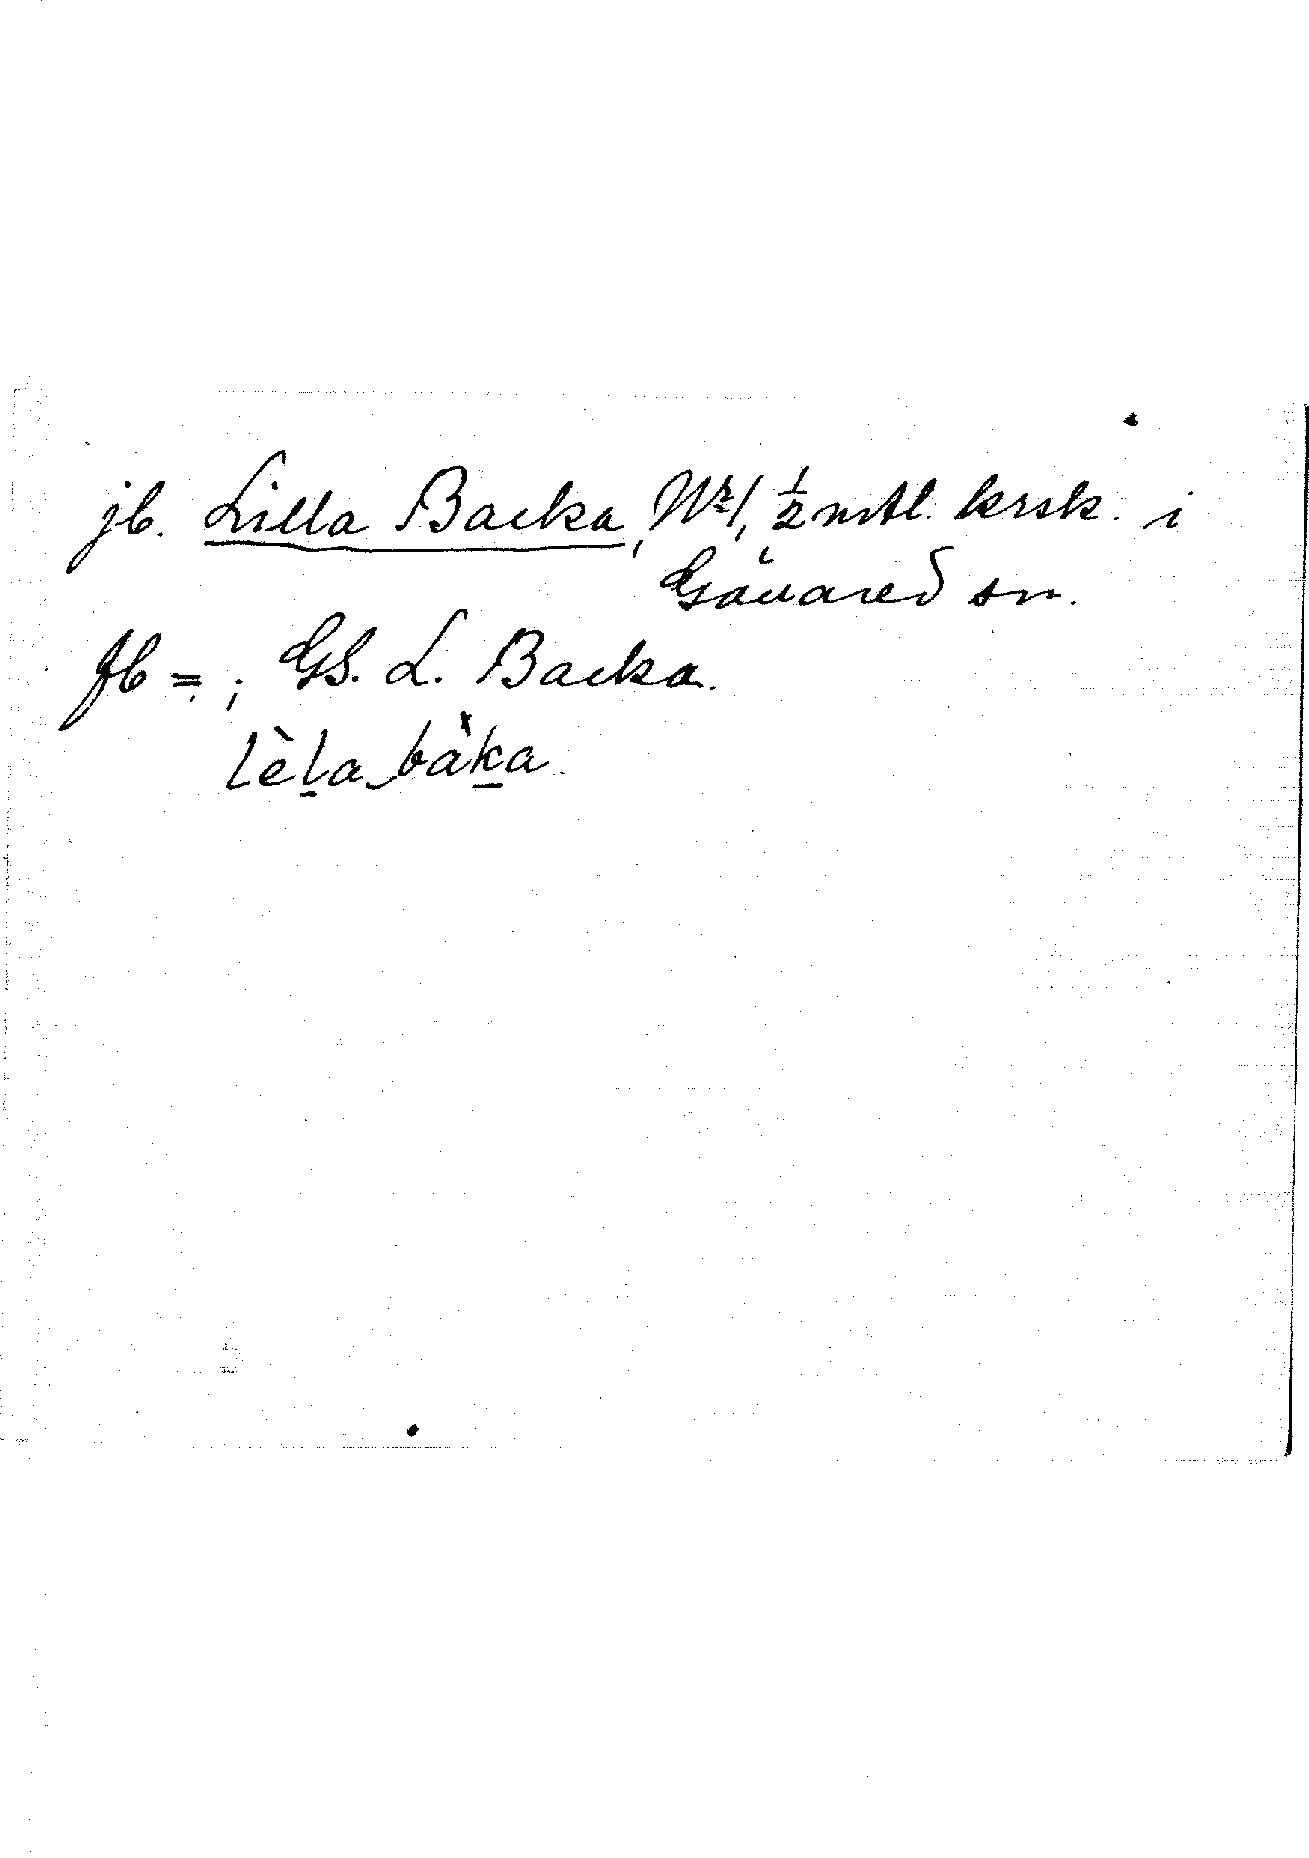 jb. Lilla Backa, Nr 1, ½ mtl. krsk. i
Gåvared sn.
Jb =; GS. L. Backa.
lèl̠a bàk̠a